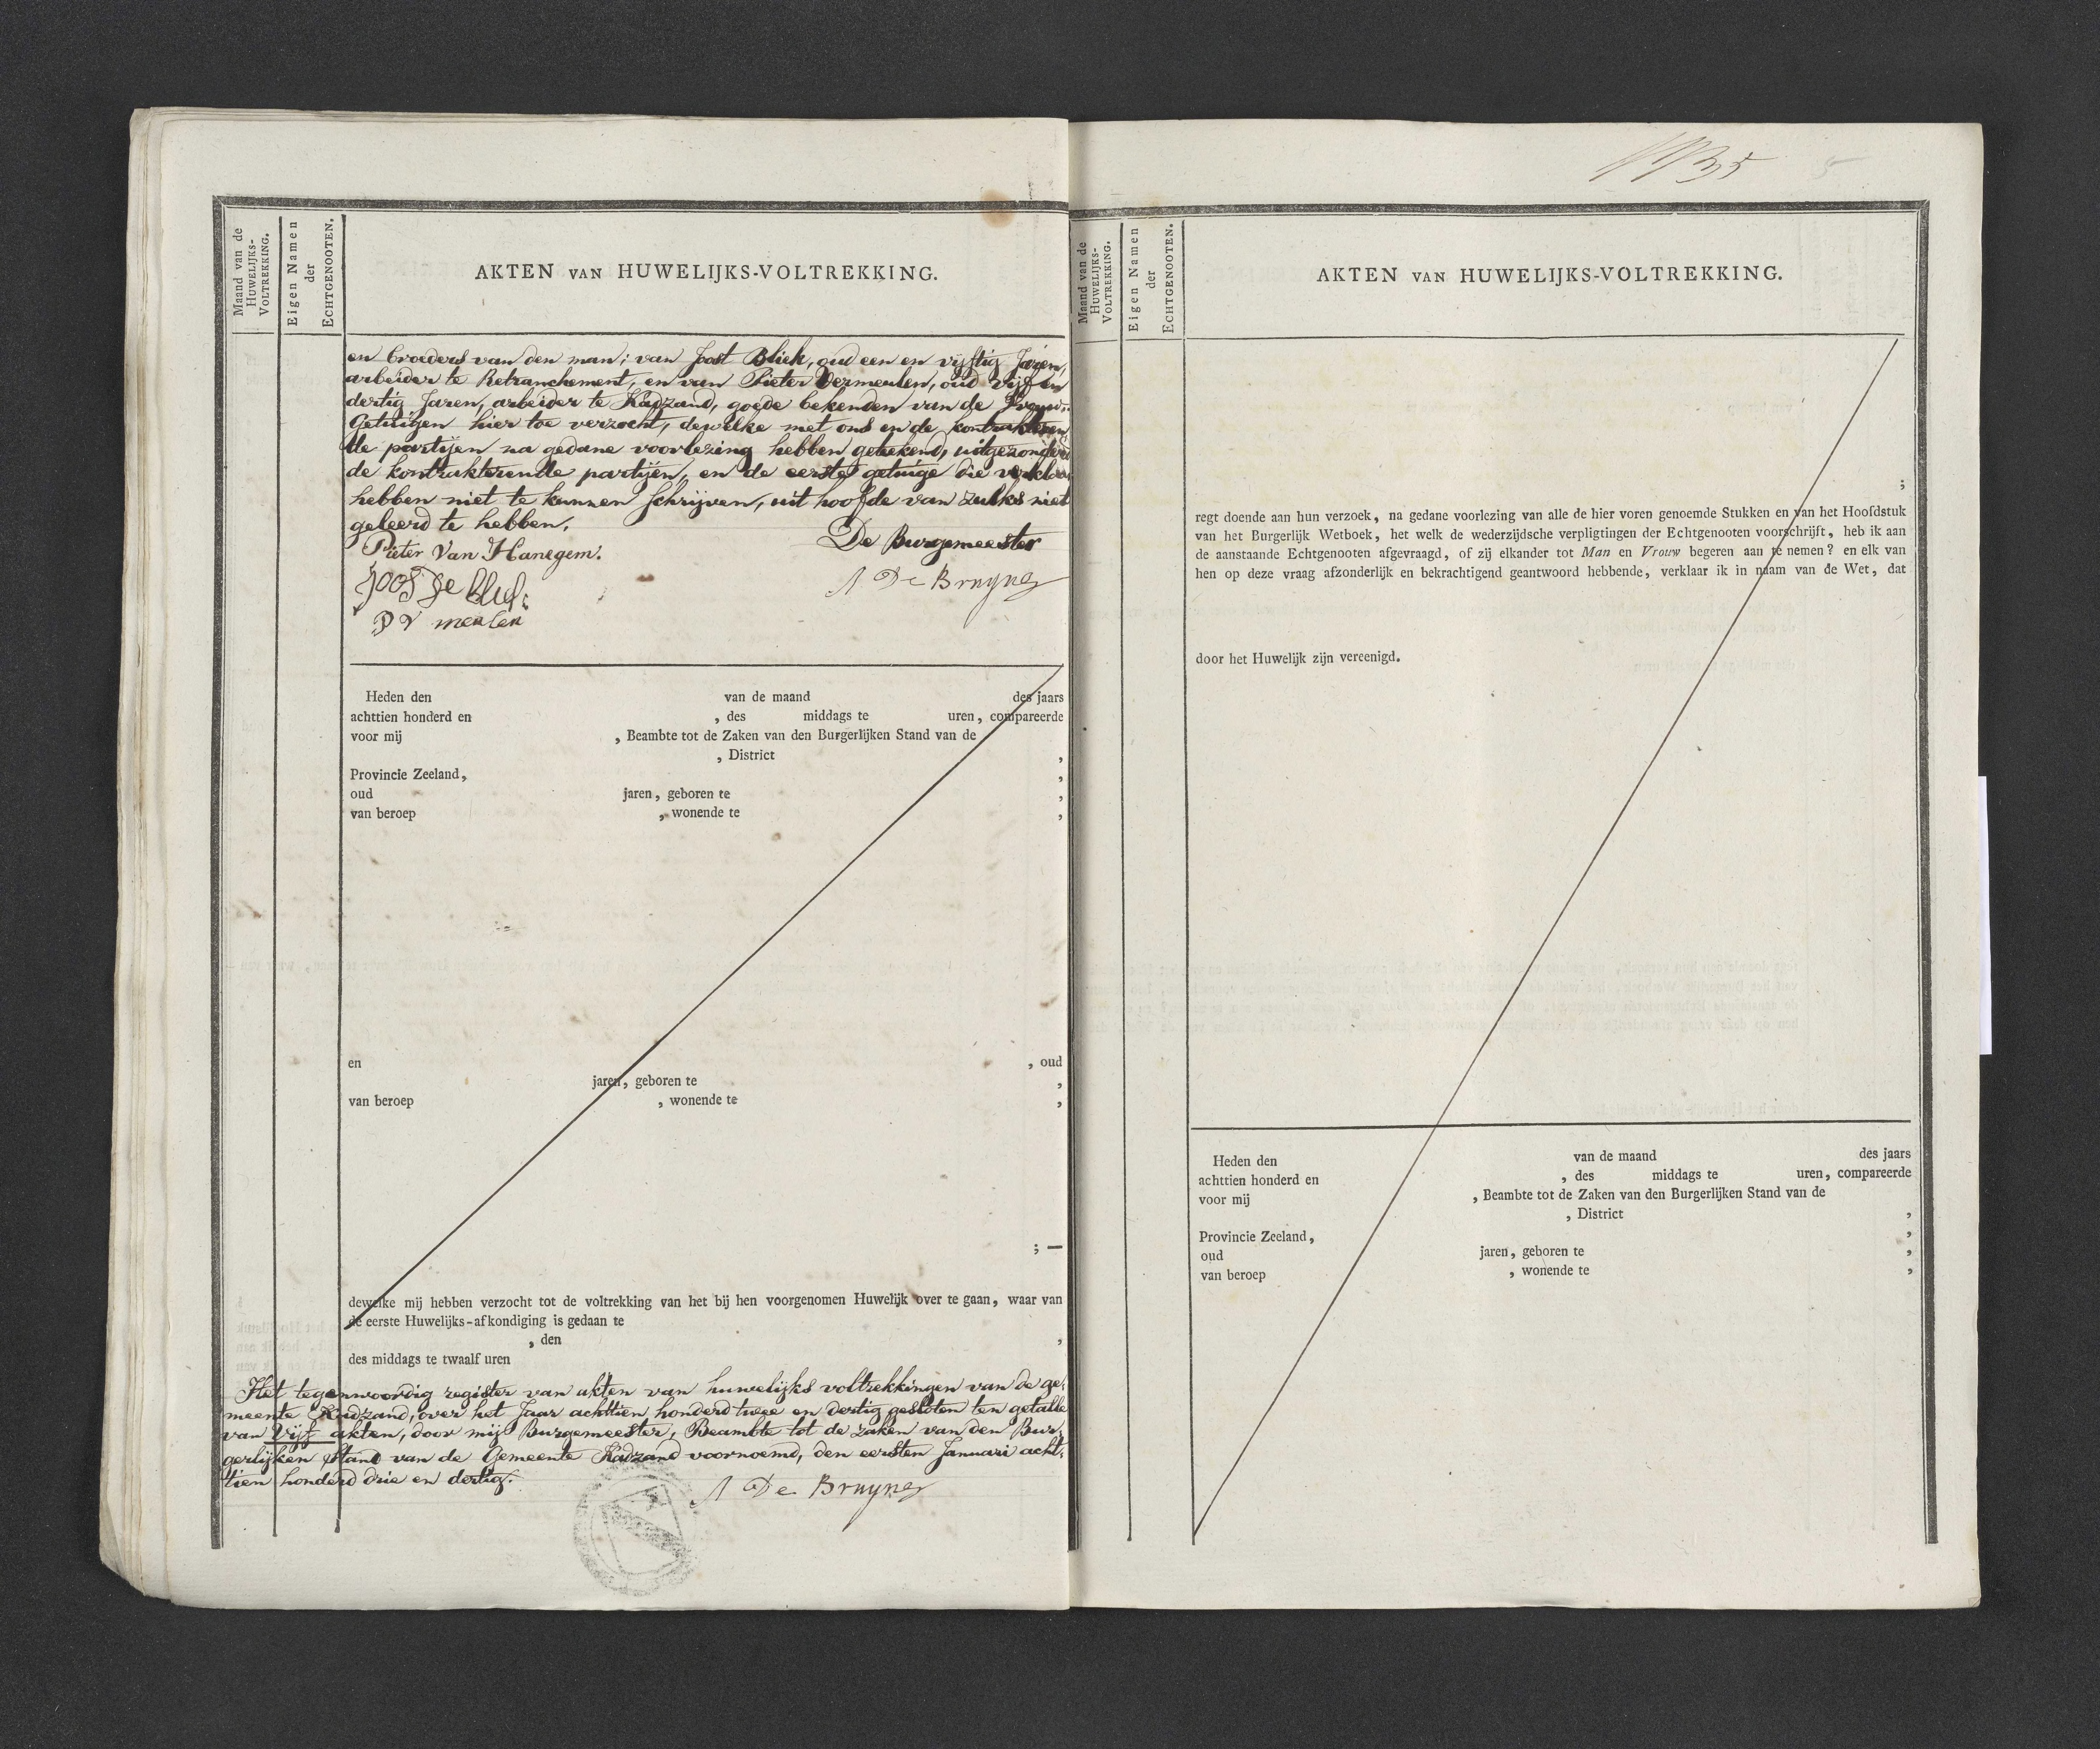 Maand van de
HUWELIJKS-
VOLTREKKING.
Eigen Namen
der
ECHTGENOOTEN.
AKTEN VAN HUWELIJKS-VOLTREKKING.
en broeders van den man; van Joost Bliek, oud een en vijftig Jaren,
arbeider te Retranchement, en van Pieter Vermeulen, oud vijf en
dertig Jaren, arbeider te Kadzand, goede bekenden van de Vrouw:
Getuigen hier toe verzocht, dewelke met ons en de kontrakteren
de partijen na gedane voorlezing hebben geteekend, uitgezonderd
de kontrakterende partijen, en de eerste getuige die verklaren
hebben niet te kunnen schrijven, uit hoofde van zulks niet
geleerd te hebben.
De Burgemeester
Pieter Van Hanegem.
A De Bruyne
Joos de
P V meulen
Heden den van de maand des jaars
achttien honderd en , des middags te uren, compareerde
voor mij , Beambte tot de Zaken van den Burgerlijken Stand van de
, District ,
Provincie Zeeland, ,
oud jaren, geboren te ,
van beroep , wonende te ,
en , oud
jaren, geboren te ,
van beroep , wonende te ,
; —
dewelke mij hebben verzocht tot de voltrekking van het bij hen voorgenomen Huwelijk over te gaan, waar van
de eerste Huwelijks-afkondiging is gedaan te
, den ,
des middags te twaalf uren
Het tegenwoordig register van akten van huwelijks voltrekkingen van de ge-
meente Kadzand, over het Jaar achttien honderd twee en dertig gesloten ten getalle
van vijf akten, door mij Burgemeester, Beambte tot de zaken van den Bur-
gerlijken Stand van de Gemeente Kadzand voornoemd, den eersten Januari acht-
tien honderd drie en dertig.
A De Bruyne
5
Maand van de
HUWELIJKS-
VOLTREKKING.
Eigen Namen
der
ECHTGENOOTEN.
AKTEN VAN HUWELIJKS-VOLTREKKING.
;
regt doende aan hun verzoek, na gedane voorlezing van alle de hier voren genoemde Stukken en van het Hoofdstuk
van het Burgerlijk Wetboek, het welk de wederzijdsche verpligtingen der Echtgenooten voorschrijft, heb ik aan
de aanstaande Echtgenooten afgevraagd, of zij elkander tot Man en Vrouw begeren aan te nemen? en elk van
hen op deze vraag afzonderlijk en bekrachtigend geantwoord hebbende, verklaar ik in naam van de Wet, dat
door het Huwelijk zijn vereenigd.
Heden den van de maand des jaars
achttien honderd en , des middags te uren, compareerde
voor mij , Beambte tot de Zaken van den Burgerlijken Stand van de
, District ,
Provincie Zeeland, ,
oud jaren, geboren te ,
van beroep , wonende te ,